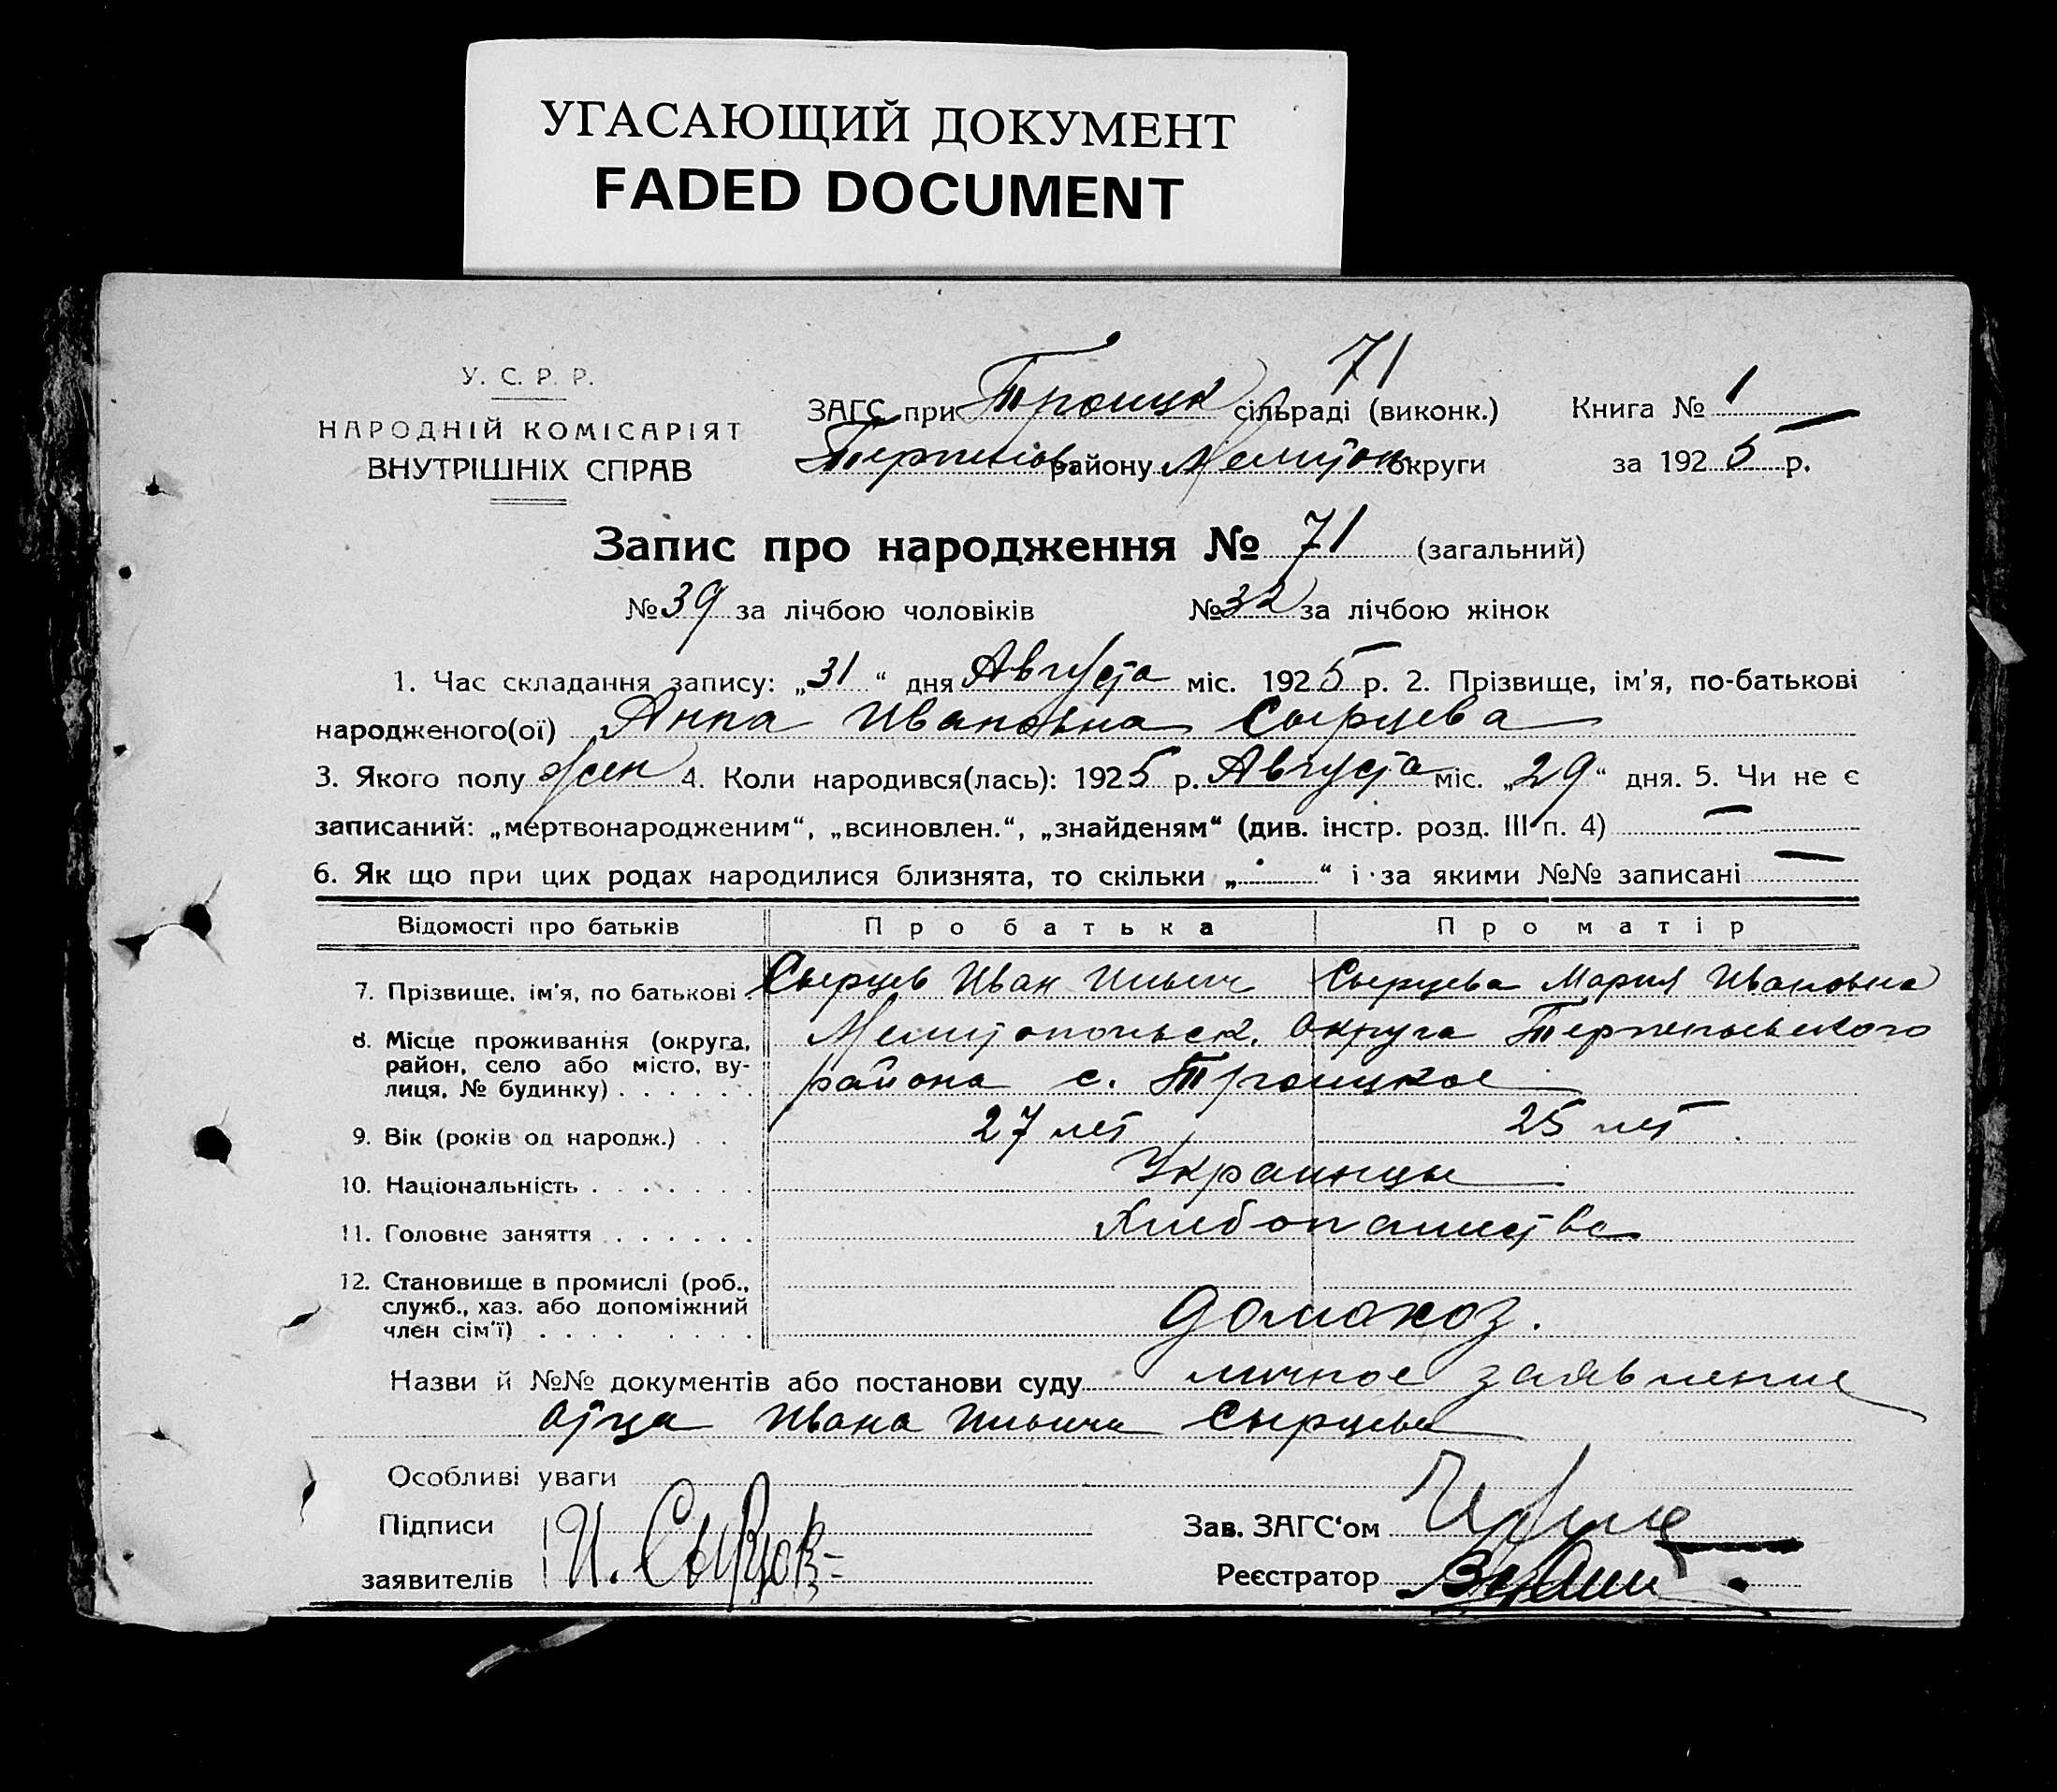 УГАСАЮЩИЙ ДОКУМЕНТ
FADED DOCUMENT
71
У. С. Р. Р.
НАРОДНІЙ КОМІСАРІЯТ
ВНУТРІШНІХ СПРАВ
ЗАГС при Троицк сільраді (виконк.)
Терпенiев району Мелитоп округи
Книга № 1
за 1925 р.
Запис про народження № 71 (загальний)
№ 39 за лічбою чоловіків № 32 за лічбою жінок
1. Час складання запису: „31“ дня Августа міс. 1925 р. 2. Прізвище, ім'я, по-батькові
народженого(ої) Анна Ивановна Сырцева
3. Якого полу жен 4. Коли народився(лась): 1925 р. Августа міс. „29“ дня. 5. Чи не є
записаний: „мертвонародженим“, „всиновлен.“, „знайденям“ (див. інстр. розд. III п. 4) —
6. Як що при цих родах народилися близнята, то скільки „.......“ і за якими №№ записані —
Відомості про батьків Про батька Про матір
7. Прізвище, ім'я, по батькові . Сырцев Иван Ильич Сырцева Мария Ивановна
8. Місце проживання (округа, Мелитопольск. Округа Терпеньевского
район, село або місто, ву- района с. Троицкое
лиця, № будинку) . . . . . .
9. Вік (років од народж.) . . 27 лет 25 лет.
10. Національність . . . . . . . Украинцы
11. Головне заняття . . . . . . Хлебопашество
12. Становище в промислі (роб.,
служб., хаз. або допоміжний
член сім'ї) . . . . . . . . домохоз.
Назви й №№ документів або постанови суду личное заявление
отца Ивана Ильича Сырцева
Особливі уваги
Підписи
заявителів И. Сырцов
Зав. ЗАГС‘ом
Реєстратор